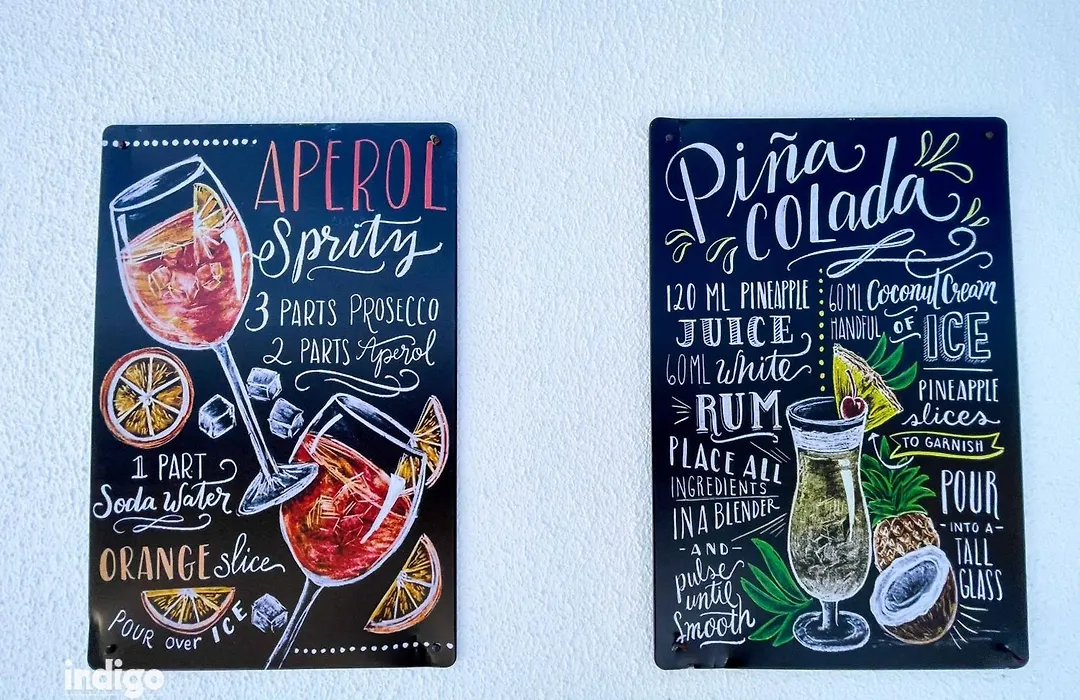 APEROL
Spritz
3 PARTS PROSECCO
2 PARTS Aperol
1 PART
Soda Water
ORANGE slice
POUR over ICE
Piña
COLada
120 ML PINEAPPLE
JUICE
60ML White
RUM
PLACE ALL
INGREDIENTS
IN A BLENDER
-AND-
pulse
until
smooth
60ML Coconut Cream
HANDFUL OF ICE
PINEAPPLE
slices
TO GARNISH
POUR
-INTO A-
TALL
GLASS
indigo